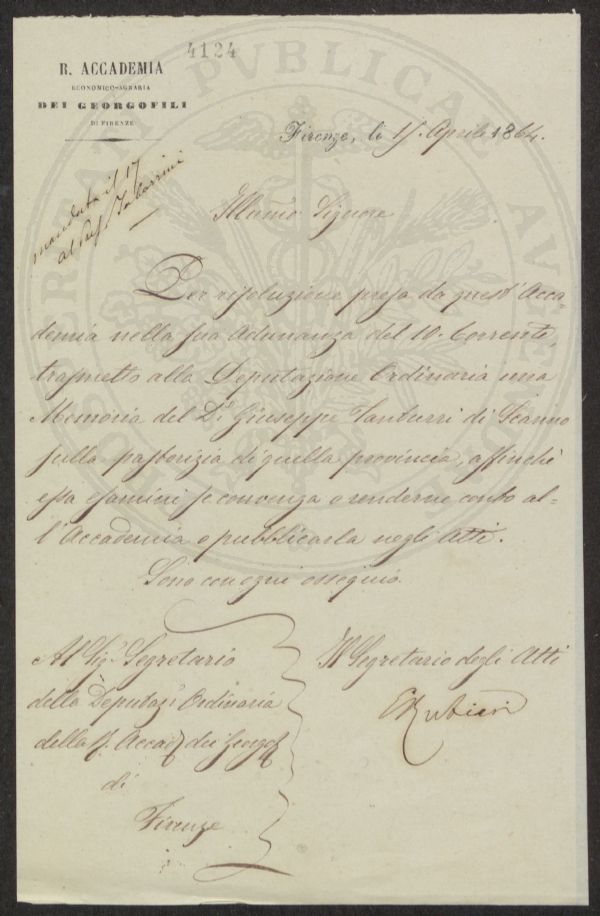 4124
R. ACCADEMIA
ECONOMICO-AGRARIA
DEI GEORGOFILI
DI FIRENZE
Firenze, li 15 Aprile 1864.
mandata il 17
al Prof Tabarrini
Illmo Signore
Per risoluzione presa da quest'Acca-
demia nella sua Adunanza del 10. Corrente,
trasmetto alla Deputazione Ordinaria una
Memoria del Dr. Giuseppe Tanturri di Scanno
sulla pastorizia di quella provincia, affinchè
essa esamini se convenga o renderne conto al-
l'Accademia o pubblicarla negli Atti.
Sono con ogni ossequio
Al Sigr Segretario
della Deputaze Ordinaria
della R. Accad dei Georgof
di
Firenze
Il Segretario degli Atti
E Rubieri